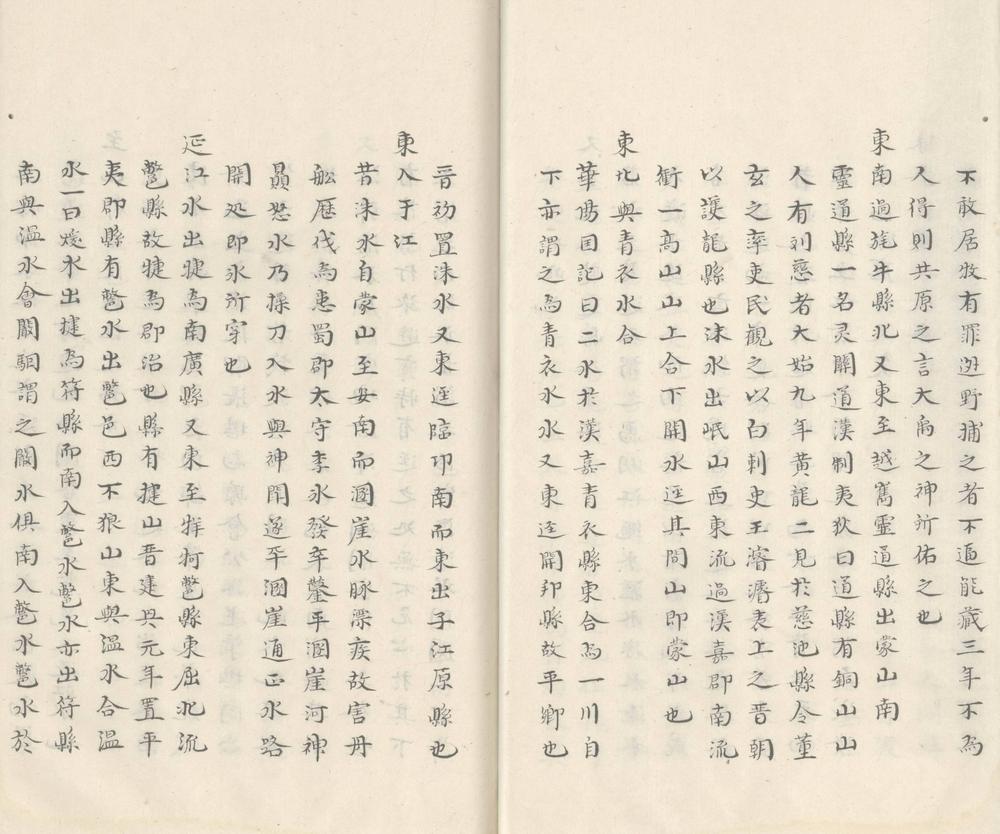 不敢居牧有罪逃野捕之者不逼能藏三年不為
人得則共原之言大禹之神所佑之也
東南過旄牛縣北又東至越嶲靈道縣出蒙山南
靈道縣一名灵關道漢制夷狄曰道縣有銅山山
人有利慈者大始九年黃龍二見於慈池縣令董
玄之率吏民觀之以白刺史王濬濬表上之晋朝
以護龍縣也沫水出岷山西東流過漢嘉郡南流
衝一高山山上合下開水逕其間山即蒙山也
東北與青衣水合
華陽囯記曰二水於漢嘉青衣縣東合為一川自
下亦謂之為青衣水水又東逕開邦縣故平鄉也
晉初置沫水又東逕臨邛南而東出于江原縣也
東入于江
昔沫水自蒙山至安南而溷崖水脉漂疾故害舟
舩歷代為患蜀郡太守李氷發卒鑿平溷崖河神
贔怒氷乃操刀入水與神鬥遂平溷崖通正水路
開処即氷所穿也
延江水出犍為南廣縣又東至牂牁鄨縣東屈北流
鄨縣故犍為郡治也縣有揵山晋建興元年置平
夷郡縣有鄨水出鄨邑西不狼山東與溫水合溫
水一曰煖水出揵為符縣而南入鄨水鄨水亦出符縣
南與溫水會闞駰謂之闞水俱南入鄨水鄨水於